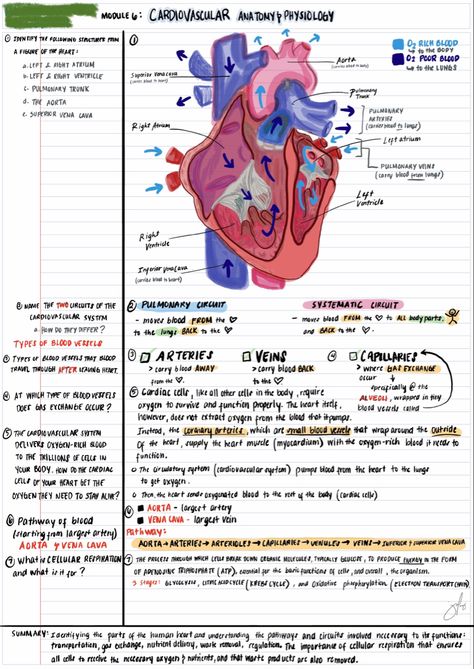 MODULE 6: CARDIOVASCULAR ANATOMY & PHYSIOLOGY
① IDENTIFY THE FOLLOWING STRUCTURES FROM
A FIGURE OF THE HEART:
a. LEFT & RIGHT ATRIUM
b. LEFT & RIGHT VENTRICLE
c. PULMONARY TRUNK
d. THE AORTA
e. SUPERIOR VENA CAVA
①
O₂ RICH BLOOD
↳ to the BODY
O₂ POOR BLOOD
↳ to the LUNGS
Aorta
(carries blood to body)
Superior vena cava
(carries blood to heart)
Pulmonary
Trunk
PULMONARY
ARTERIES
(carries blood to lungs)
Right Atrium
Left atrium
PULMONARY VEINS
(carry blood from lungs)
Left
Ventricle
Right
Ventricle
Inferior vena cava
(carries blood to heart)
② NAME THE TWO CIRCUITS OF THE
CARDIOVASCULAR SYSTEM
a. HOW DO THEY DIFFER?
TYPES OF BLOOD VESSELS
③ TYPES OF BLOOD VESSELS THAT BLOOD
TRAVEL THROUGH AFTER LEAVING HEART.
④ AT WHICH TYPE OF BLOOD VESSELS
DOES GAS EXCHANGE OCCUR?
⑤ THE CARDIOVASCULAR SYSTEM
DELIVERS OXYGEN-RICH BLOOD
TO THE TRILLIONS OF CELLS IN
YOUR BODY. HOW DO THE CARDIAC
CELLS OF YOUR HEART GET THE
OXYGEN THEY NEED TO STAY ALIVE?
⑥ Pathway of blood
(starting from largest artery)
AORTA & VENA CAVA
⑦ WHAT IS CELLULAR RESPIRATION
and what is it for?
② PULMONARY CIRCUIT
- moves blood FROM the ♡
to the lungs BACK to the ♡
SYSTEMATIC CIRCUIT
- moves blood FROM the ♡ to ALL body parts,
and BACK to the ♡.
③ ARTERIES
> carry blood AWAY
from the ♡.
VEINS
> carry blood BACK
to the ♡.
④ CAPILLARIES
> where GAS EXCHANGE
occur
↳ specifically @ the
ALVEOLI, wrapped in tiny
blood vessels called
⑤ Cardiac cells, like all other cells in the body, require
oxygen to survive and function properly. The heart itself,
however, does not extract oxygen from the blood that it pumps.
Instead, the coronary arteries, which are small blood vessels that wrap around the outside
of the heart, supply the heart muscle (myocardium) with the oxygen-rich blood it needs to
function.
○ The circulatory system (cardiovascular system) pumps blood from the heart to the lungs
to get oxygen.
○ Then, the heart sends oxygenated blood to the rest of the body (cardiac cells)
⑥ AORTA - largest artery
VENA CAVA - largest vein
Pathway:
AORTA → ARTERIES → ARTERIOLES → CAPILLARIES → VENULES → VEINS → INFERIOR & SUPERIOR VENA CAVA
⑦ THE PROCESS THROUGH WHICH CELLS BREAK DOWN ORGANIC MOLECULES, TYPICALLY GLUCOSE, TO PRODUCE ENERGY IN THE FORM
OF ADENOSINE TRIPHOSPHATE (ATP), essential for the basic functions of cells, and overall, the organism.
3 stages: GLYCOLYSIS, CITRIC ACID CYCLE (KREBS CYCLE), and Oxidative phosphorylation (ELECTRON TRANSPORT CHAIN)
SUMMARY: Identifying the parts of the human heart and understanding the pathways and circuits involved necessary to its functions:
transportation, gas exchange, nutrient delivery, waste removal, regulation. The importance of cellular respiration that ensures
all cells to receive the necessary oxygen & nutrients, and that waste products are also removed.